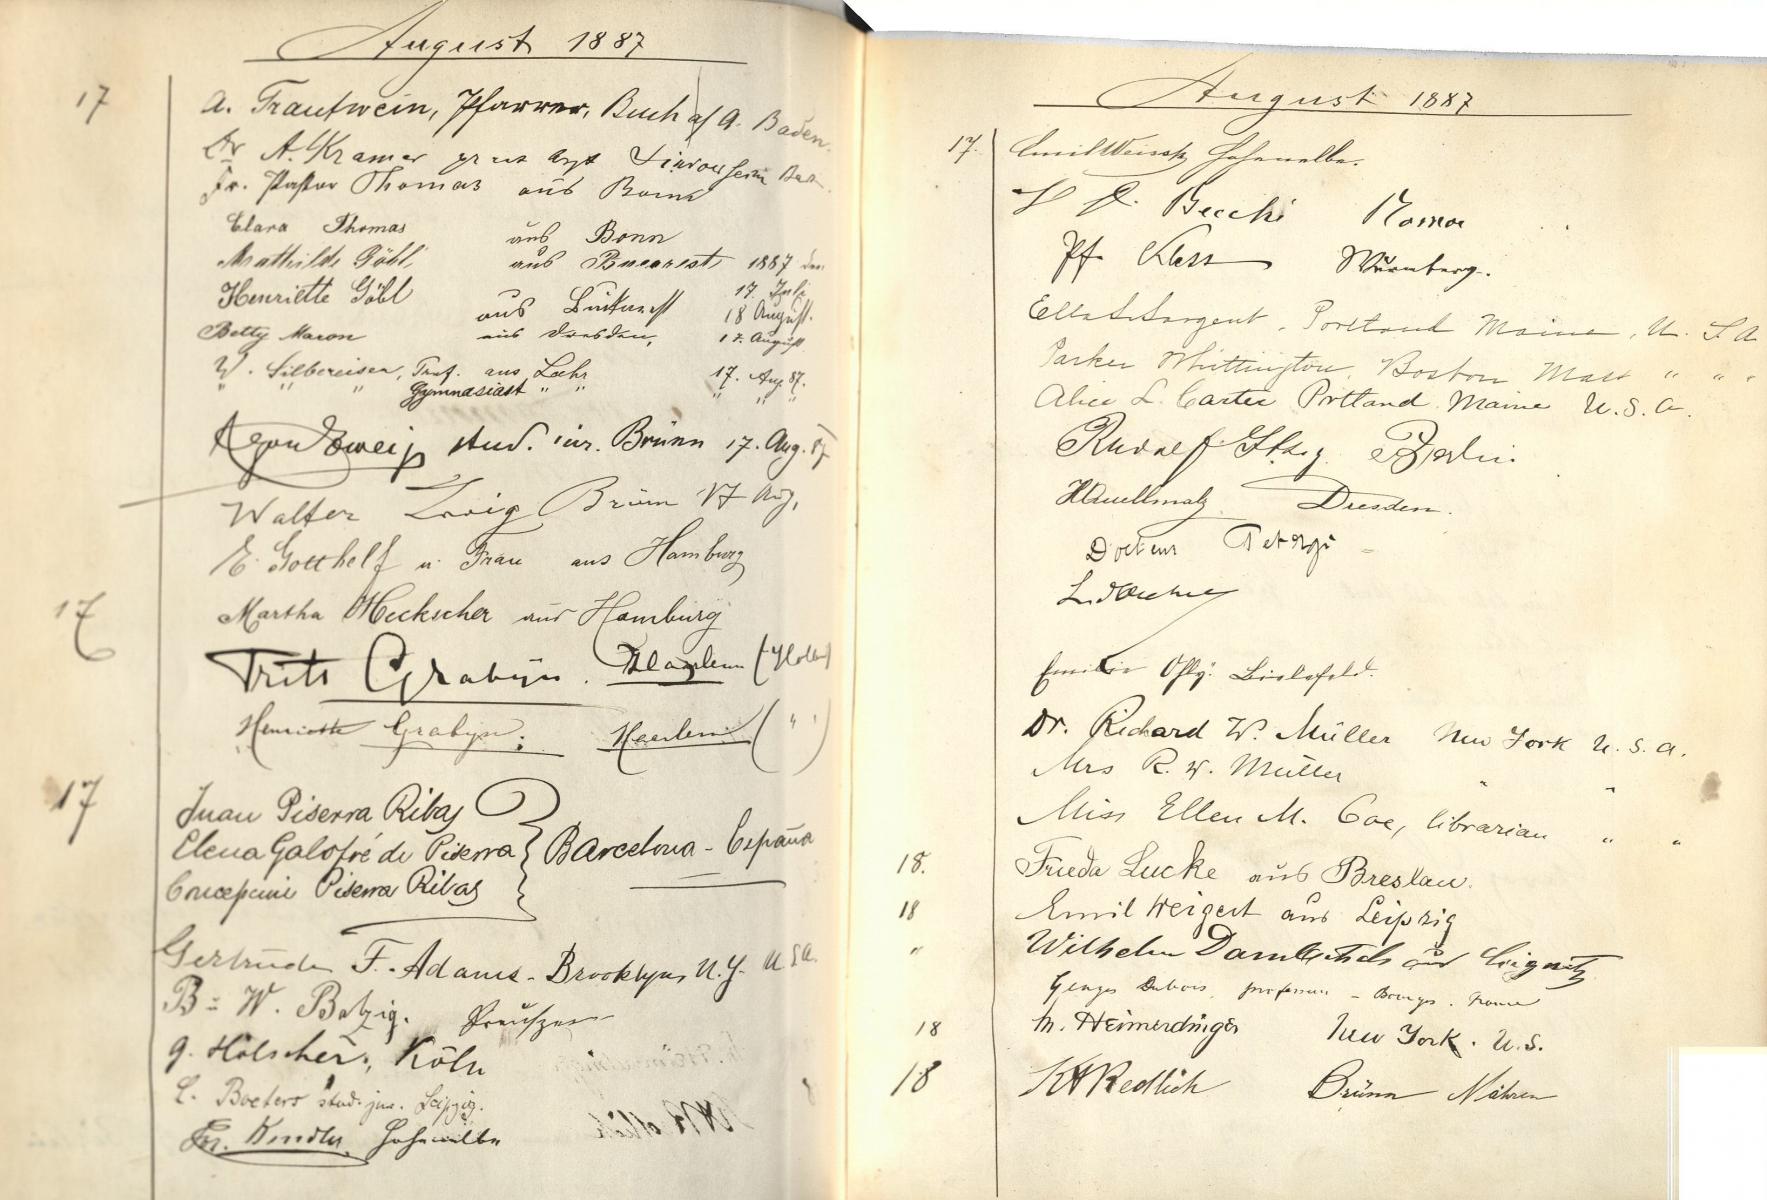 August 1887
17 A. Trautwein, Pfarrer, Buch a/ A. Baden.
Dr A. Kramer pract Arzt
Fr. Pastor Thomas aus Bonn
Clara Thomas aus Bonn
Mathilde Göbl aus Bucarest 1887 den
17. Juli
Henriette Göbl aus 18 August.
Betty Maron aus Dresden, 17. August
W. Silbereisen, Prof. aus Lahr 17. Aug 87.
" " " Gymnasiast " " " " "
Egon Zweig stud. iur. Brünn 17. Aug. 87
Walter Zweig Brünn 17 Aug.
E. Gotthelf u. Frau aus Hamburg
17 Martha Heckscher aus Hamburg
Frits Grabijn. Haarlem (Holland)
Henriette Grabijn; Haarlem ( " " )
17 Juan Piserra Ribas
Elena Galofré de Piserra } Barcelona - España
Piserra Ribas
Gertrude F. Adams - Brooklyn, N.Y. U.S.A.
B = W. Batzig. Preußen
G. Hölscher, Köln
C. Boeters stud. jur. Leipzig.
Fr. Kindler, Hohenelbe
August 1887
17. Emil Hohenelbe.
Becchi Roma
Pf. Kless Nürnberg.
Ella S. Sargent, Portland Maine, U. S. A
Parker Whittington, Boston Mass " " "
Alice L. Carter Portland Maine U. S. A.
Rudolf Berlin.
Dresden.
Docteur
Emilie Ohly. Bielefeld.
Dr. Richard W. Müller New York U. S. A.
Mrs R. W. Müller " "
Miss Ellen M. Coe, librarian " "
18. Frieda Lucke aus Breslau.
18 Emil Weigert aus Leipzig
" Wilhelm aus Liegnitz
Georges Dubois, professeur - Bourges. France
18 M. Heimerdinger New York. U. S.
18 Redlich Brünn Mähren